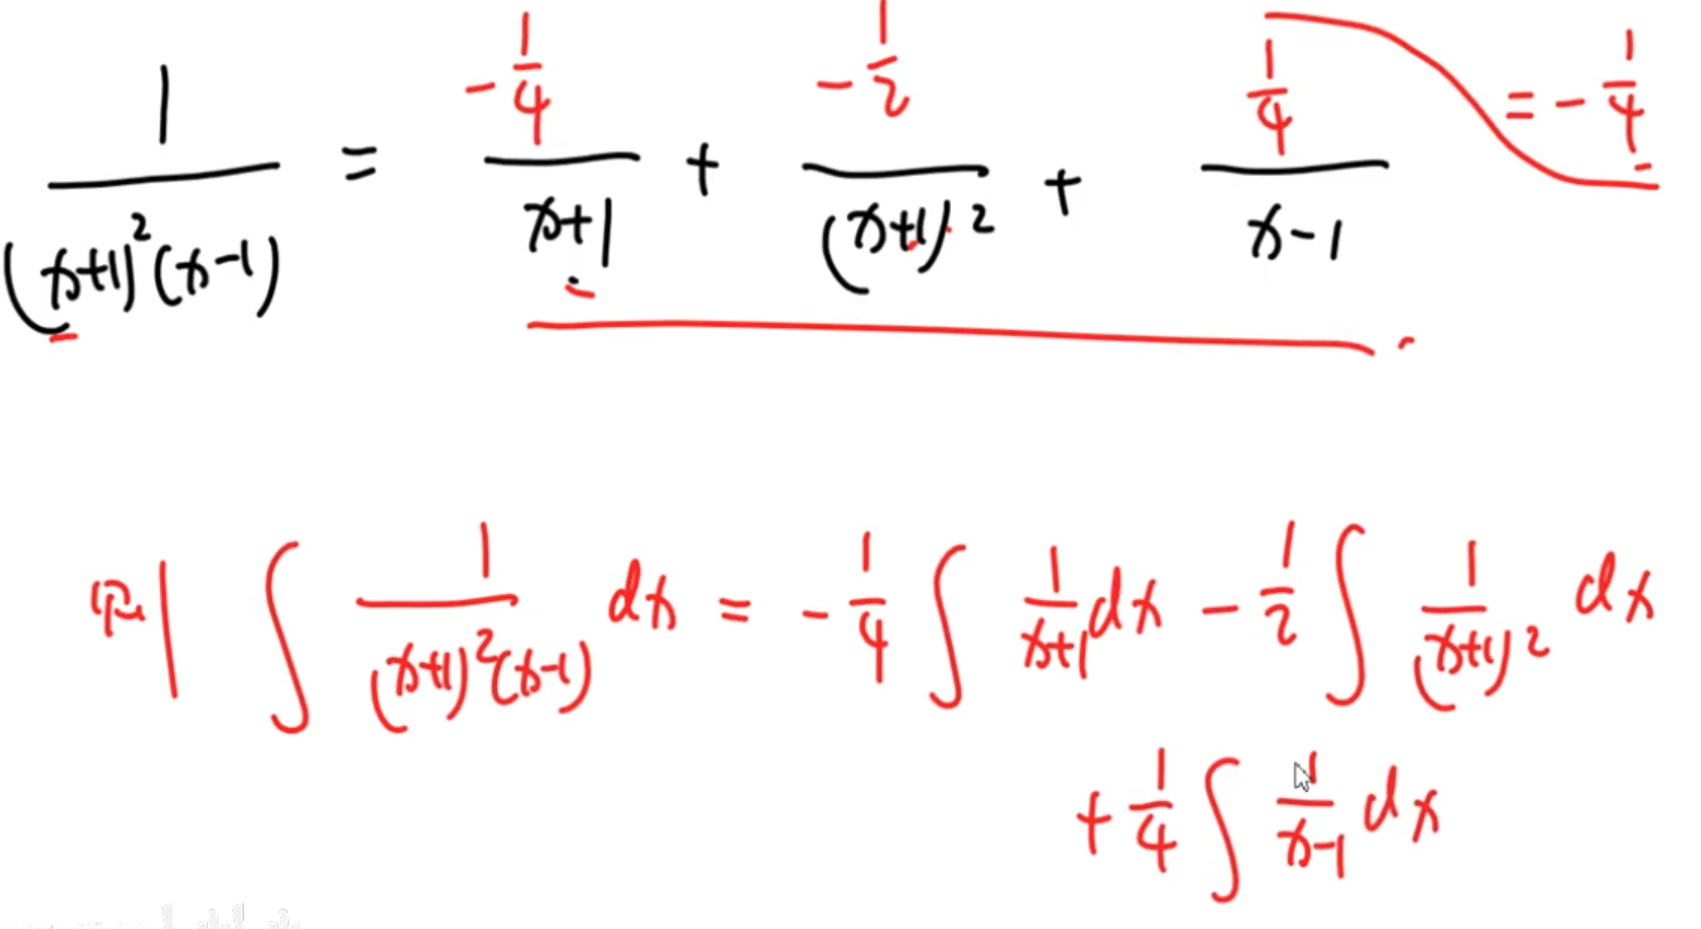 1/((x+1)²(x-1)) = (-1/4)/(x+1) + (-1/2)/((x+1)²) + (1/4)/(x-1) = -1/4
∫ 1/((x+1)²(x-1)) dx = -1/4 ∫ 1/(x+1) dx - 1/2 ∫ 1/((x+1)²) dx
+ 1/4 ∫ 1/(x-1) dx